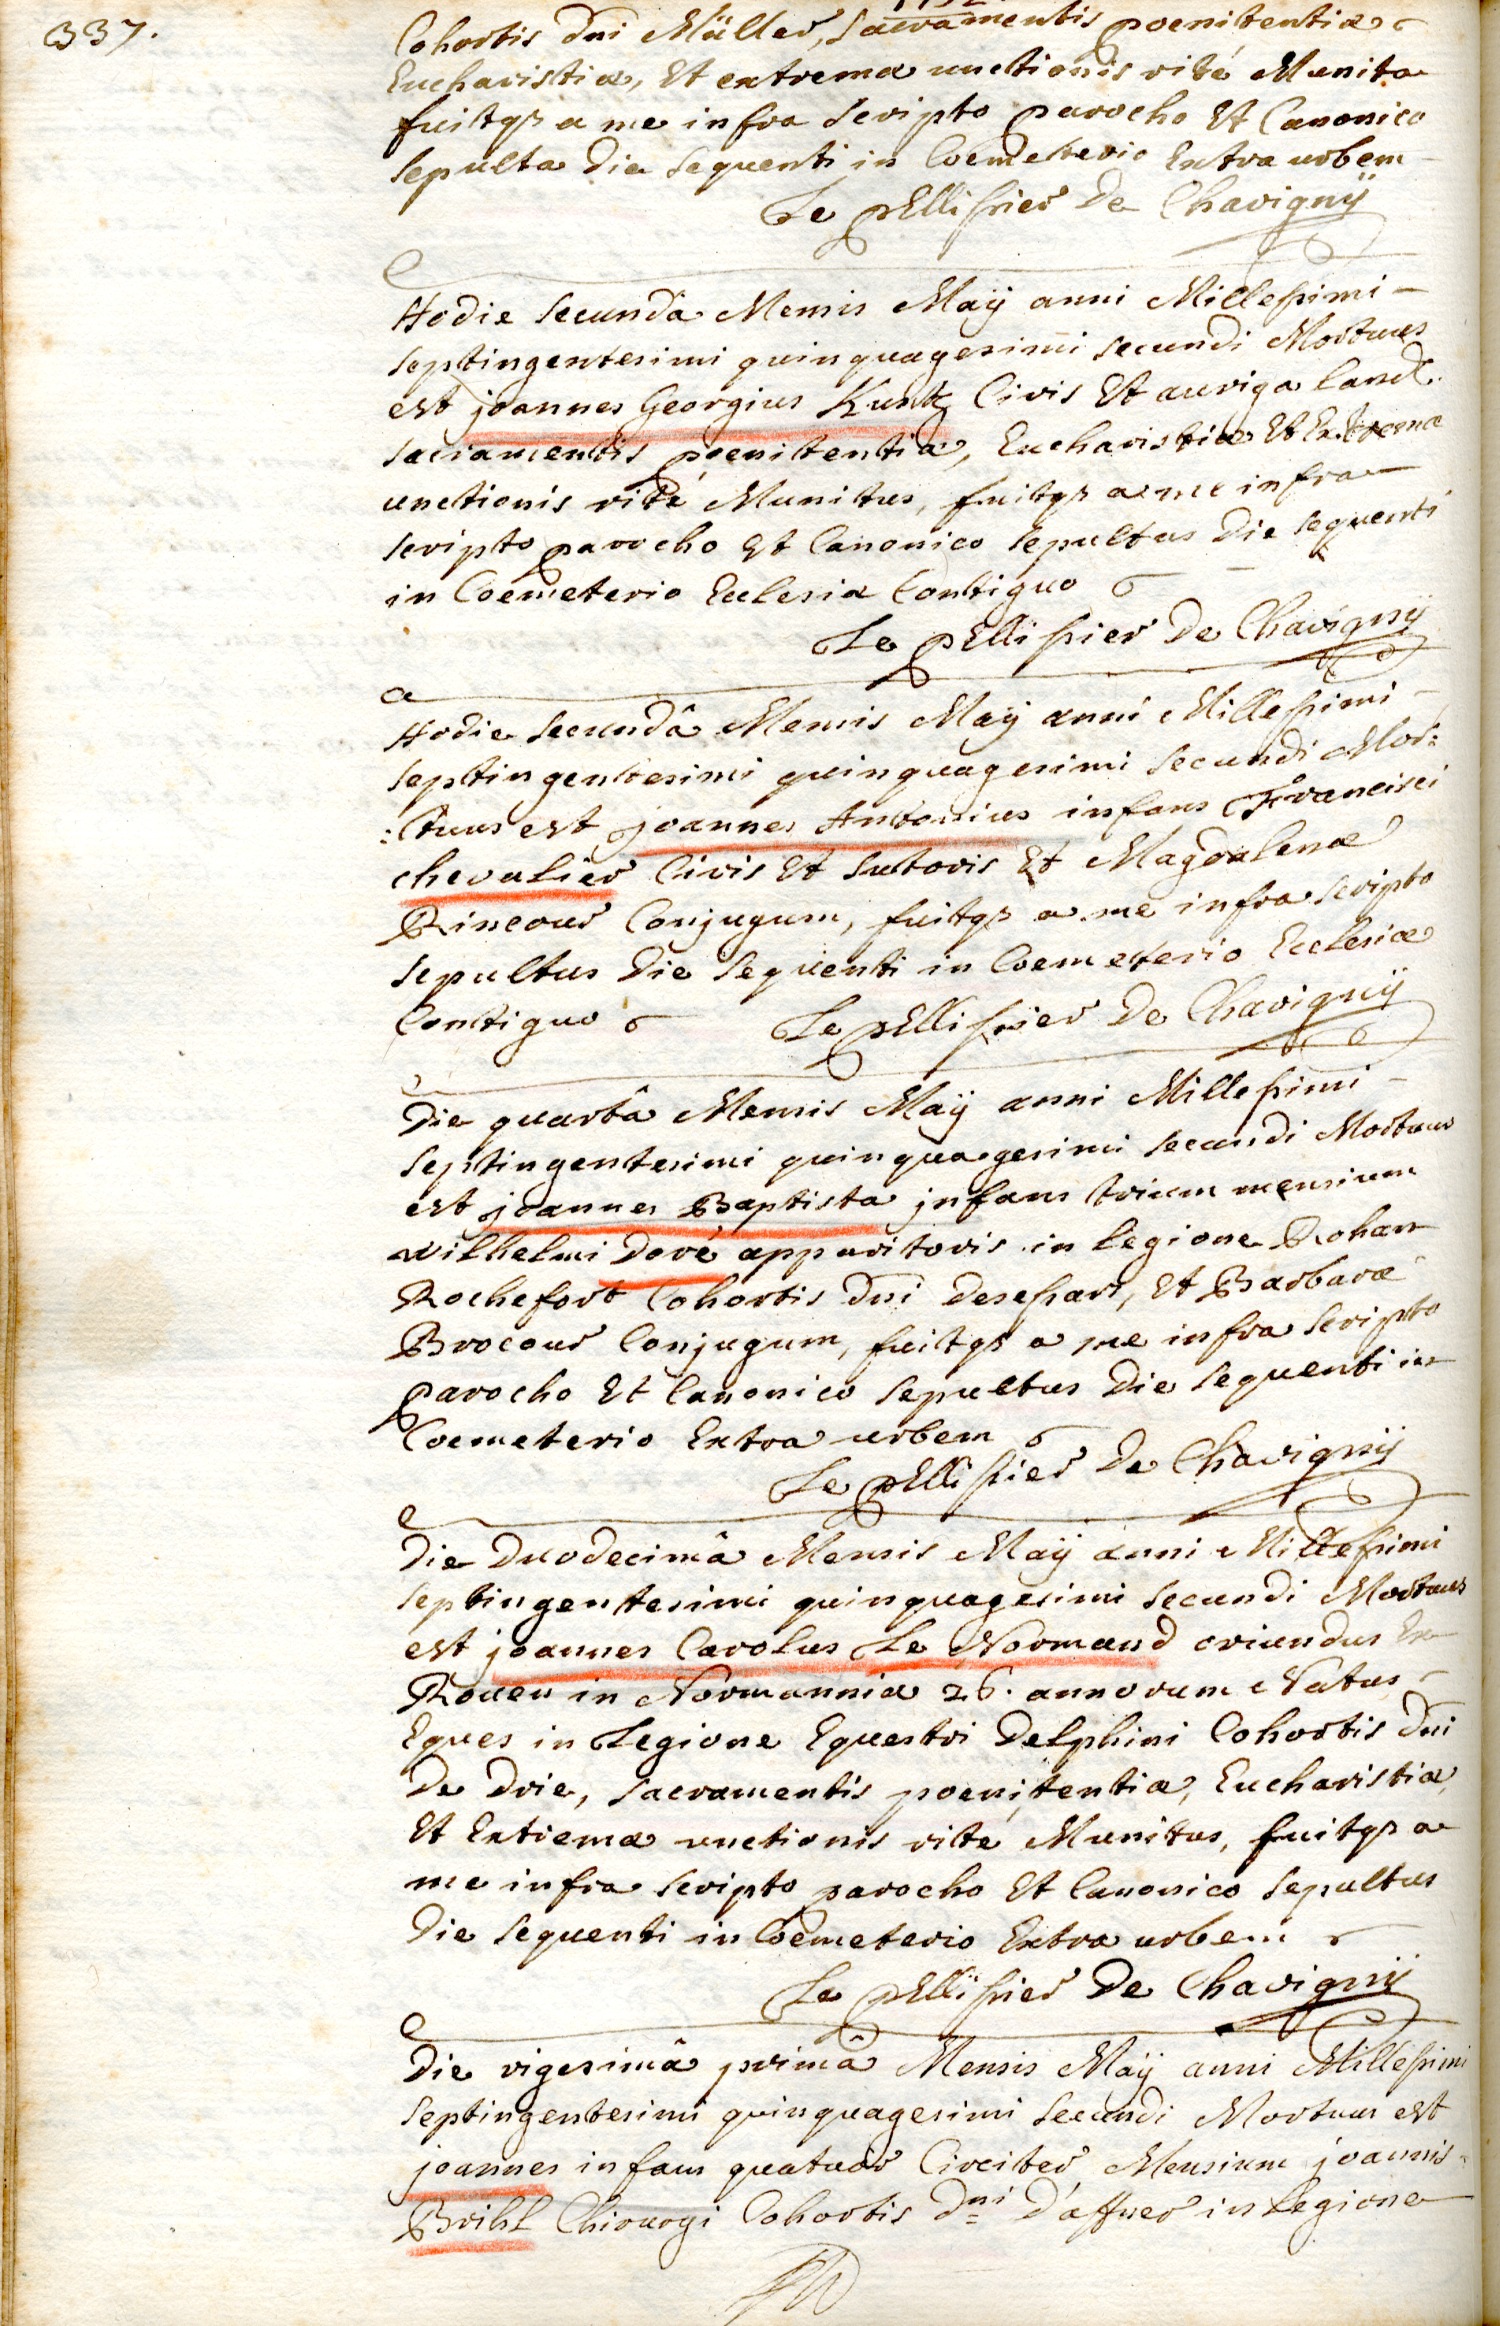 337.
1752.
Cohortis dni Müller, Sacramentis poenitentiæ
Eucharistiæ, Et extremæ unctionis rité Munita
fuitqz a me infra scripto parocho Et Canonico
sepulta die sequenti in Coemeterio Extra urbem
Le pEllissier De Chavignÿ
Hodie secundâ Mensis Maÿ anni Millesimi -
septingentesimi quinquagesimi secundi Mortuus
est joannes Georgius Kuntz Civis Et auriga Land.
sacramentis poenitentiæ, Eucharistiæ Et Extremæ
unctionis rité Munitus, fuitqz a me infra
scripto parocho Et Canonico sepultus die sequenti
in Coemeterio Ecclesiæ Contiguo
Le pEllissier De Chavignÿ
Hodie secundâ Mensis Maÿ anni Millesimi
septingentesimi quinquagesimi secundi Mor:
:tuus est joannes Antonius infans Francisci
chevalier Civis Et sutoris Et Magdalenæ
Rincour Conjugum, fuitqz a me infra scripto
sepultus die sequenti in Coemeterio Ecclesiæ
Contiguo Le pEllissier De Chavignÿ
Die quartâ Mensis Maÿ anni Millesimi -
septingentesimi quinquagesimi secundi Mortuus
est joannes Baptista jnfans trium mensium
wilhelmi Doré apparitoris in legione Rohan
Rochefort Cohortis dni Desessart, Et Barbaræ
Brocour Conjugum, fuitqz a me infra scripto
parocho Et Canonico sepultus die sequenti in
Coemeterio Extra urbem
Le pEllissier De Chavignÿ
Die duodecimâ Mensis Maÿ anni Millesimi
septingentesimi quinquagesimi secundi Mortuus
est joannes Carolus Le Normand oriundus Ex
Rouen in Normannia 26. annorum Natus
Eques in Legione Equestri Delphini Cohortis dni
De Drie, sacramentis poenitentiæ, Eucharistiæ,
Et Extremæ unctionis rité Munitus, fuitqz a
me infra scripto parocho Et Canonico sepultus
die sequenti in Coemeterio Extra urbem
Le pEllissier De Chavignÿ
Die vigesimâ primâ Mensis Maÿ anni Millesimi
septingentesimi quinquagesimi secundi Mortuus est
joannes infans quatuor Circiter Mensium joannis
Brihl Chirurgi Cohortis Dni D'affner in Legione